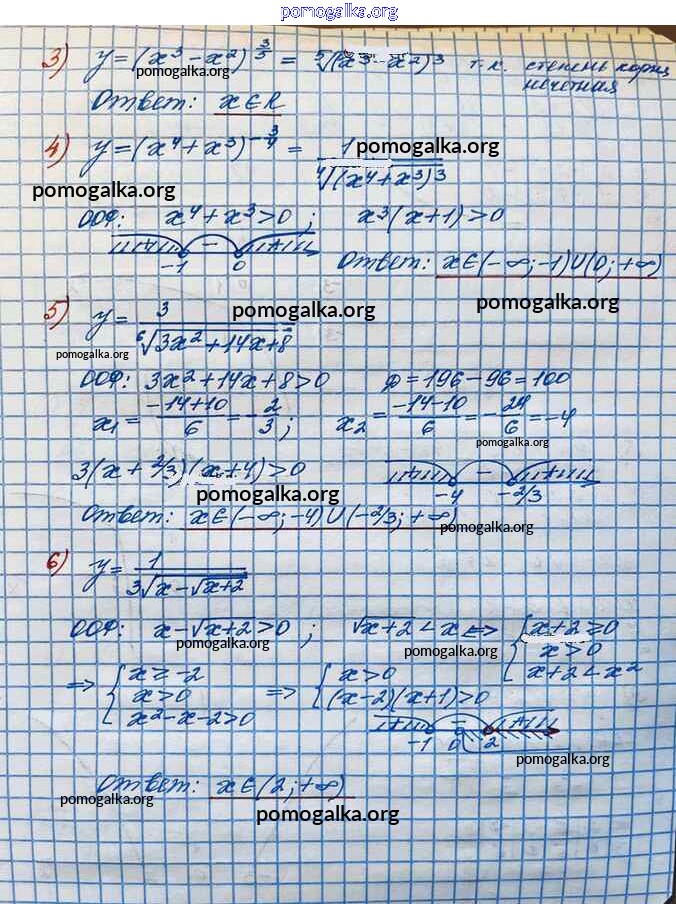 pomogalka.org
3) y = (x³ - x²)^(3/5) = ⁵√(x³ - x²)³ т.к. степень корня
pomogalka.org
нечетная
Ответ: x∈R
4) y = (x⁴ + x³)^(-3/4) = 1/⁴√(x⁴ + x³)³
pomogalka.org
pomogalka.org
ООФ: x⁴ + x³ > 0 ; x³(x+1) > 0
-
-1 0
Ответ: x∈(-∞; -1)U(0; +∞)
pomogalka.org
5) y = 3/⁶√(3x² + 14x + 8)
pomogalka.org
pomogalka.org
ООФ: 3x² + 14x + 8 > 0 D = 196 - 96 = 100
x₁ = (-14+10)/6 = -2/3 ; x₂ = (-14-10)/6 = -24/6 = -4
pomogalka.org
3(x + 2/3)(x + 4) > 0
-
-4 -2/3
pomogalka.org
Ответ: x∈(-∞; -4)U(-2/3; +∞)
pomogalka.org
6) y = 1/(3√(x - √(x+2)))
ООФ: x - √(x+2) > 0 ; √(x+2) < x <=> { x+2 ≥ 0
pomogalka.org
pomogalka.org
x > 0
x+2 < x²
=> { x ≥ -2 => { x > 0
x > 0 (x-2)(x+1) > 0
x² - x - 2 > 0
-
-1 0 2
pomogalka.org
Ответ: x∈(2; +∞)
pomogalka.org
pomogalka.org